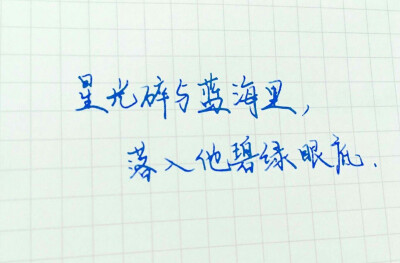 星光碎与蓝海里，
落入他碧绿眼底.